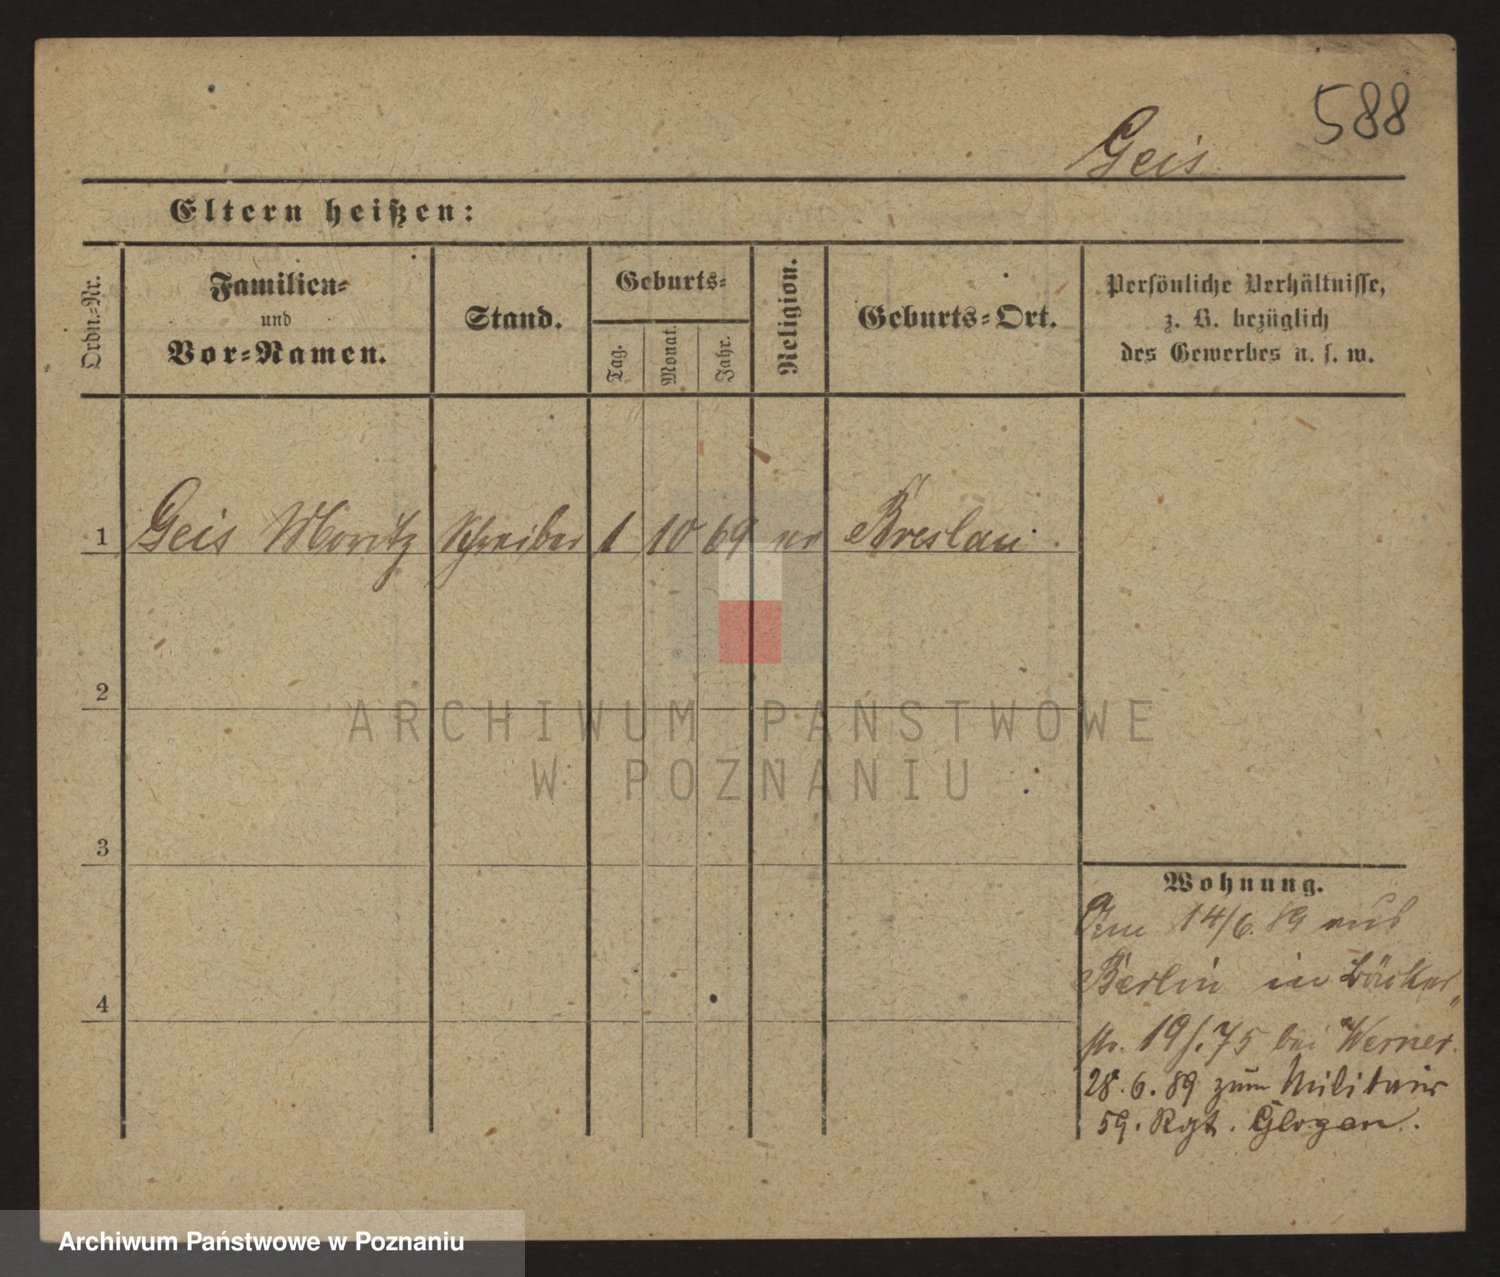 588
Geis
Eltern heißen:
Ordn.-Nr.
Familien-
und
Vor-Namen.
Stand.
Geburts-
Tag.
Monat.
Jahr.
Religion.
Geburts-Ort.
Persönliche Verhältnisse,
z. B. bezüglich
des Gewerbes u. s. w.
1 Geis Moritz Schreiber 1 10 69 ev Breslau.
2
3
4
Wohnung.
Am 14/6. 89 aus
Berlin in Bäcker-
str. 19/. 75 bei Werner.
28. 6. 89 zum Militair
59. Rgt. Glogau.
ARCHIWUM PAŃSTWOWE
W POZNANIU
Archiwum Państwowe w Poznaniu